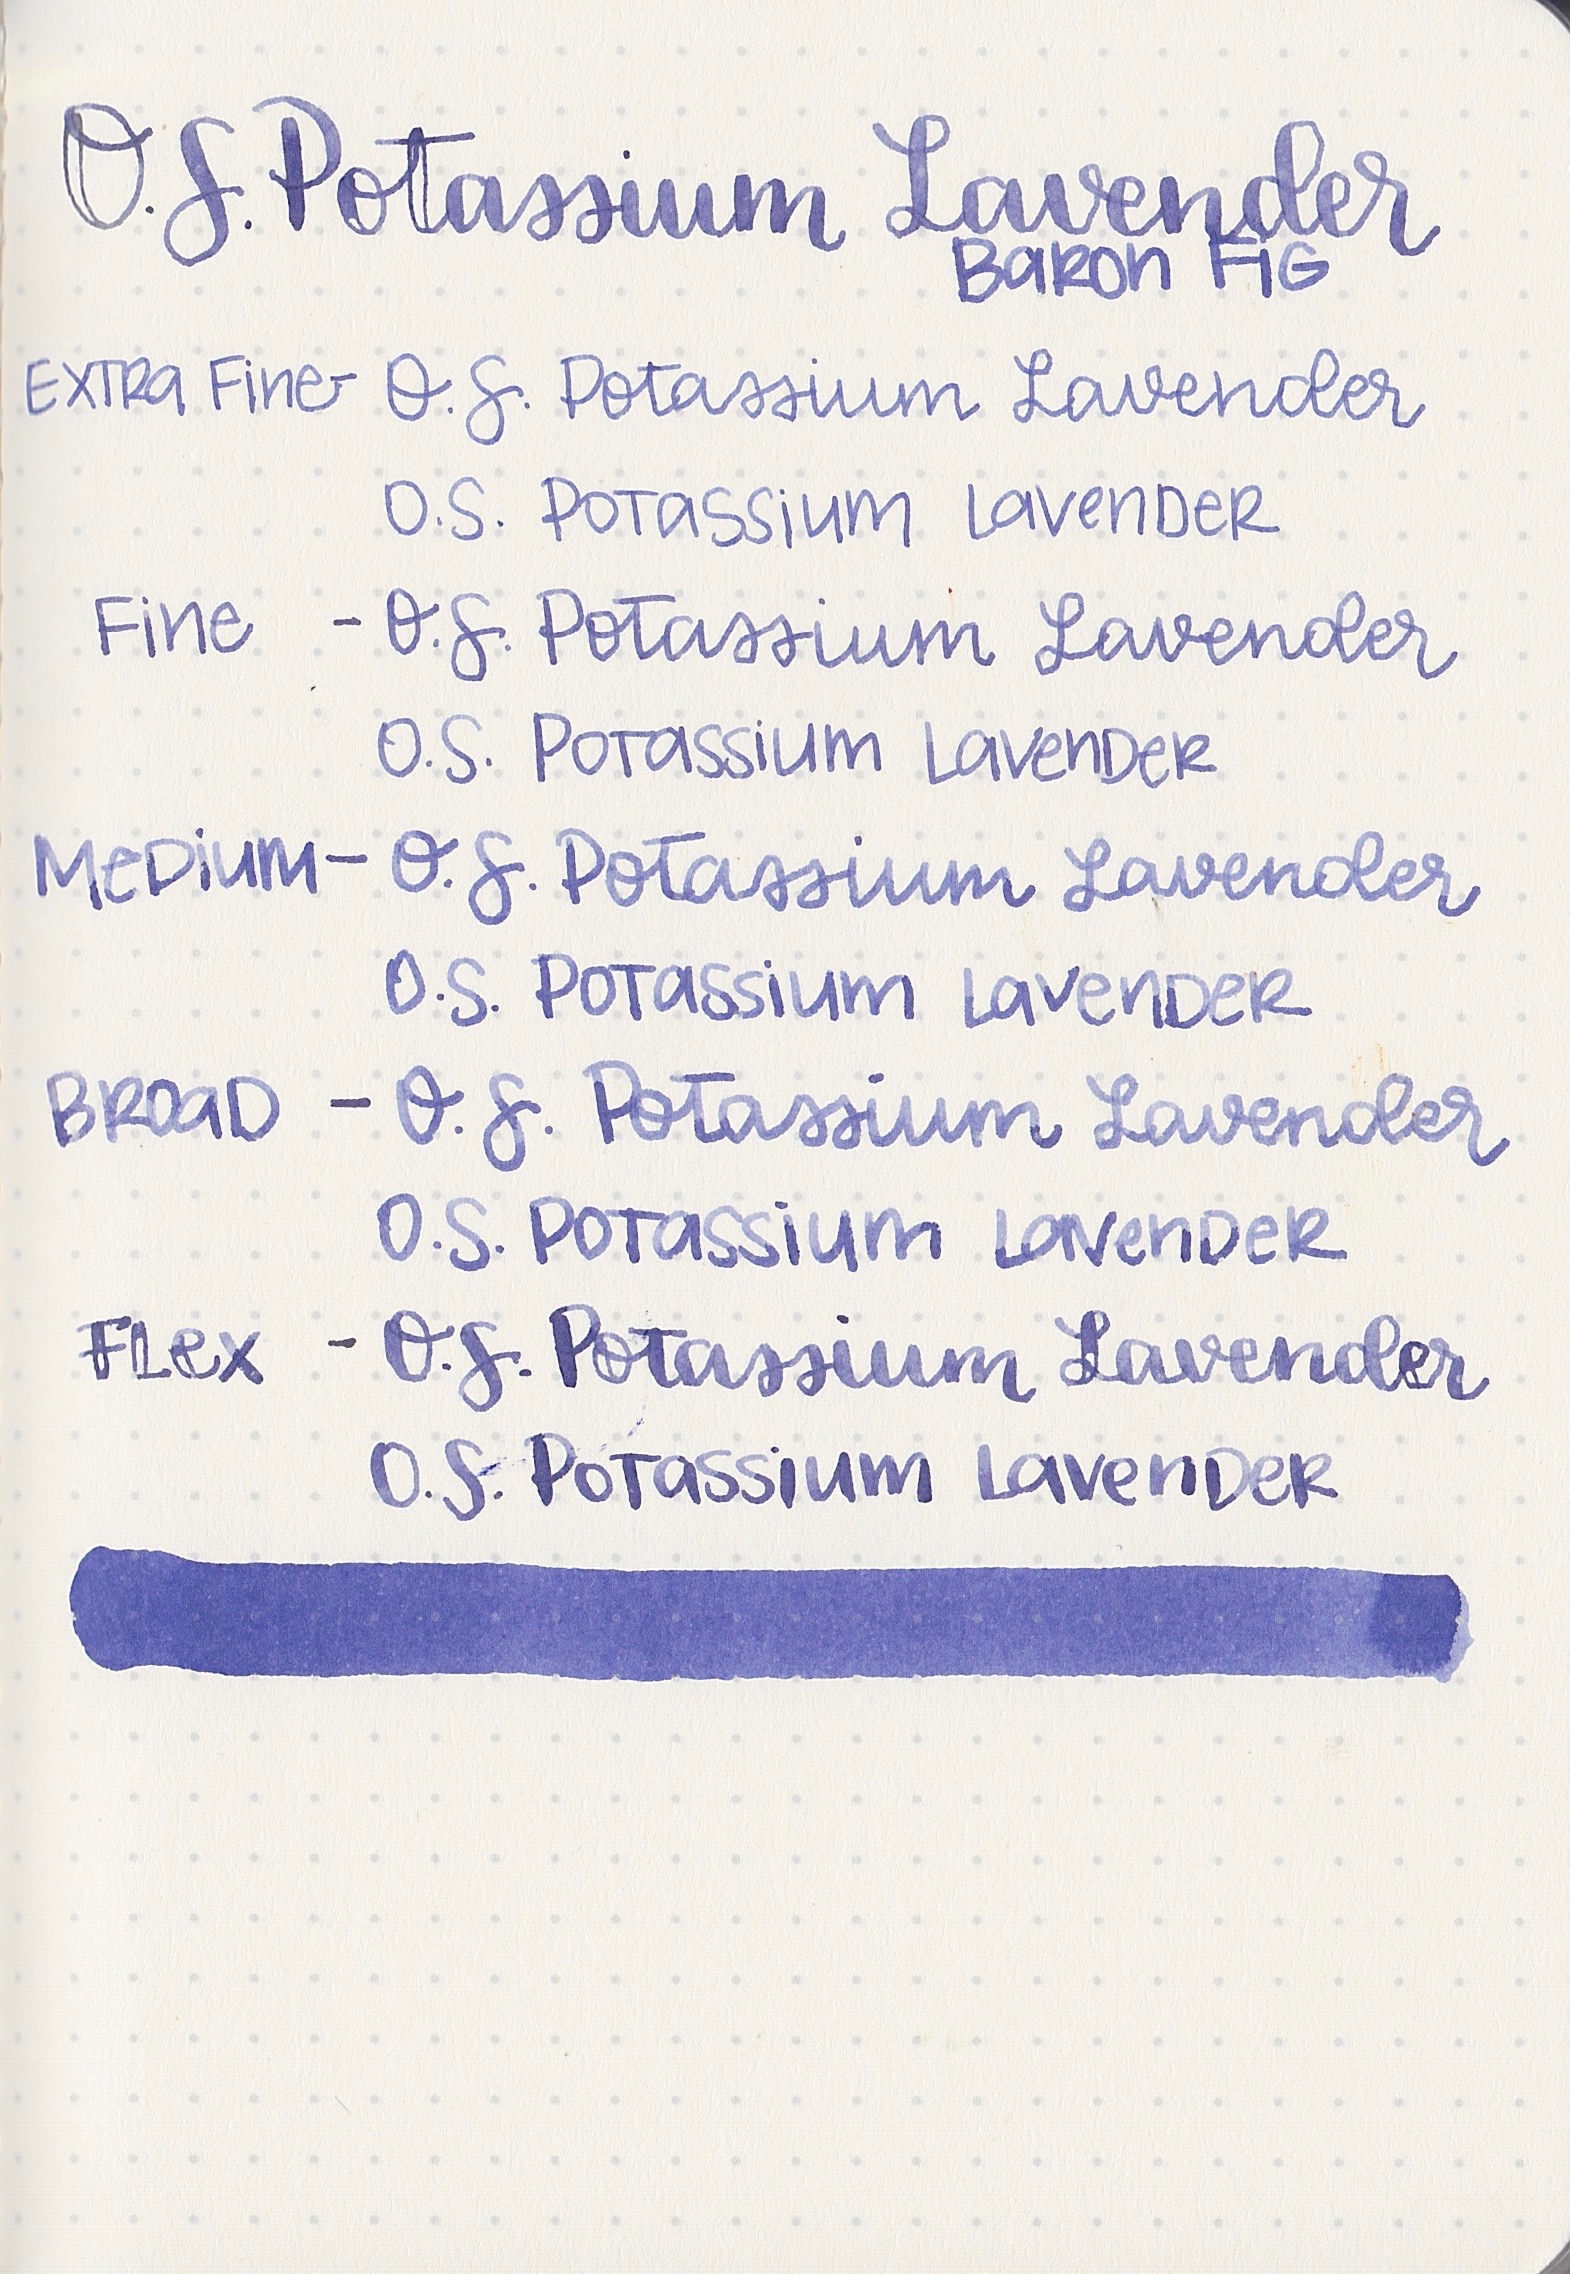 O.S. Potassium Lavender
Baron Fig
Extra Fine - O.S. Potassium Lavender
O.S. Potassium Lavender
Fine - O.S. Potassium Lavender
O.S. Potassium Lavender
Medium - O.S. Potassium Lavender
O.S. Potassium Lavender
Broad - O.S. Potassium Lavender
O.S. Potassium Lavender
Flex - O.S. Potassium Lavender
O.S. Potassium Lavender